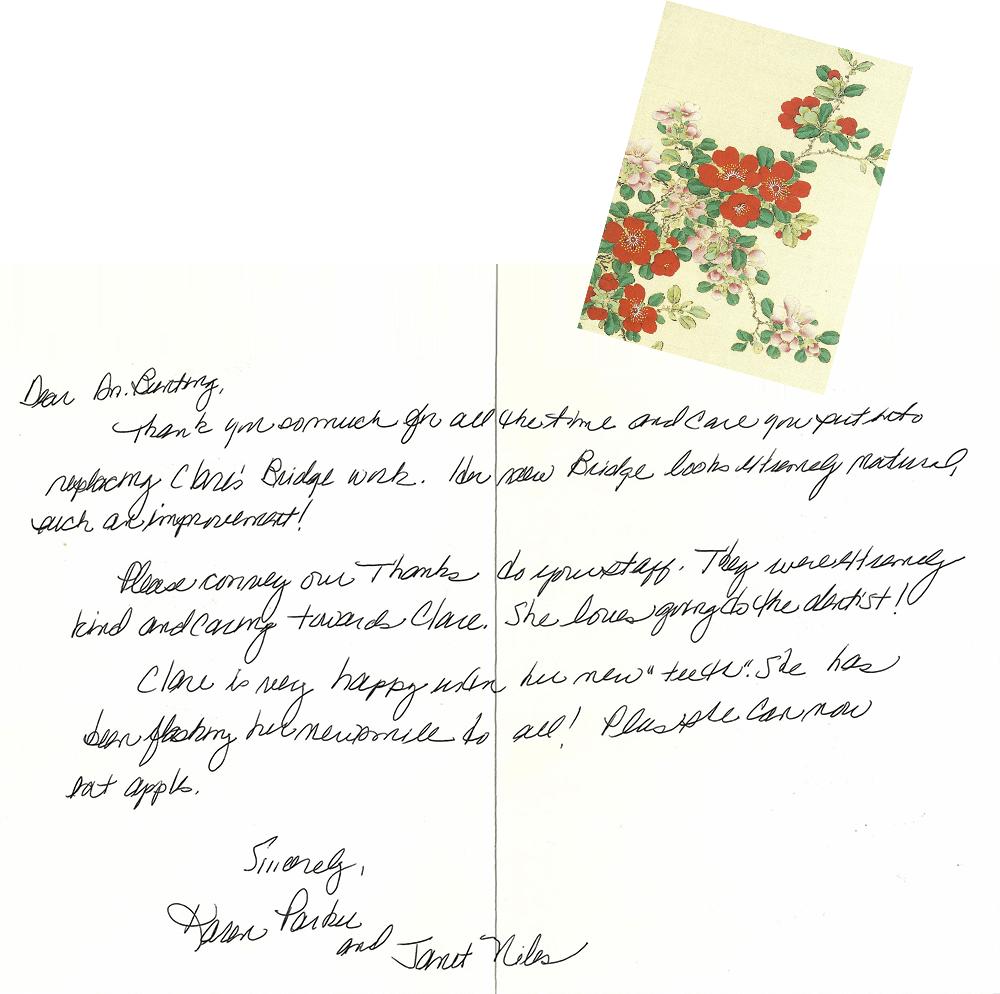 Dear Dr. Bunting,
Thank you so much for all the time and care you put into
replacing Clare's Bridge work. Her new Bridge looks extremely natural,
such an improvement!
Please convey our Thanks to your staff. They were extremely
kind and caring towards Clare. She loves going to the dentist!
Clare is very happy with her new "teeth". She has
been flashing her new smile to all! Plus she can now
eat apples.
Sincerely,
Karen Parker
and Janet Niles